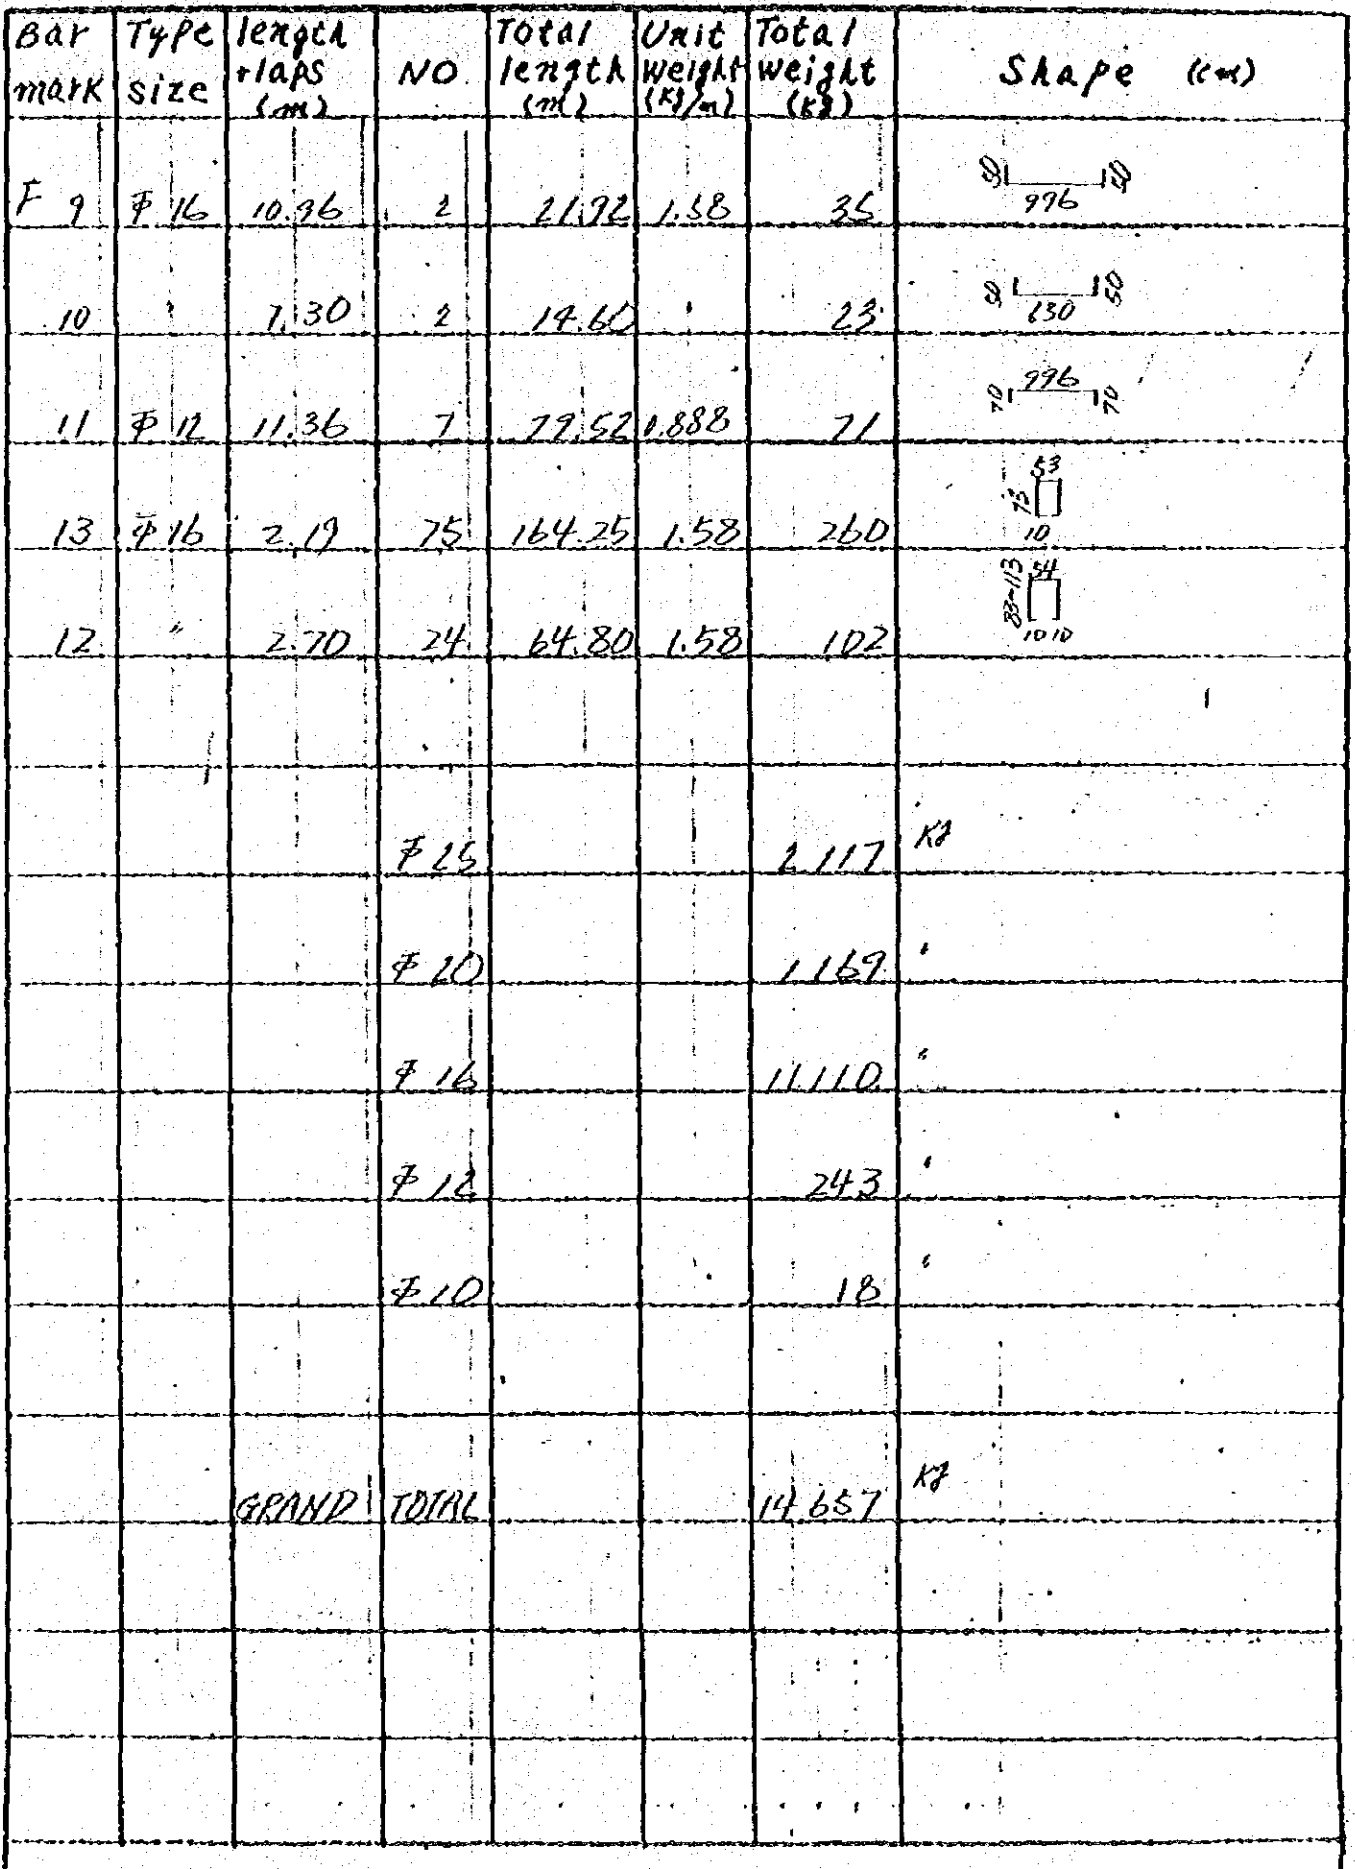 Bar mark | Type size | length +laps (m) | NO. | Total length (m) | Unit weight (kg/m) | Total weight (kg) | Shape (cm)
F 9 | Φ 16 | 10.96 | 2 | 21.92 | 1.58 | 35 | 50 996 50
10 | " | 7.30 | 2 | 14.60 | " | 23 | 50 630 50
11 | Φ 12 | 11.36 | 7 | 79.52 | 0.888 | 71 | 70 996 70
13 | Φ 16 | 2.19 | 75 | 164.25 | 1.58 | 260 | 53 73 10
12 | " | 2.70 | 24 | 64.80 | 1.58 | 102 | 83~113 54 10 10
Φ 25 | 2.117 | kg
Φ 20 | 1.169 | "
Φ 16 | 11.110 | "
Φ 12 | 243 | "
Φ 10 | 18 | "
GRAND TOTAL | 14.657 | kg